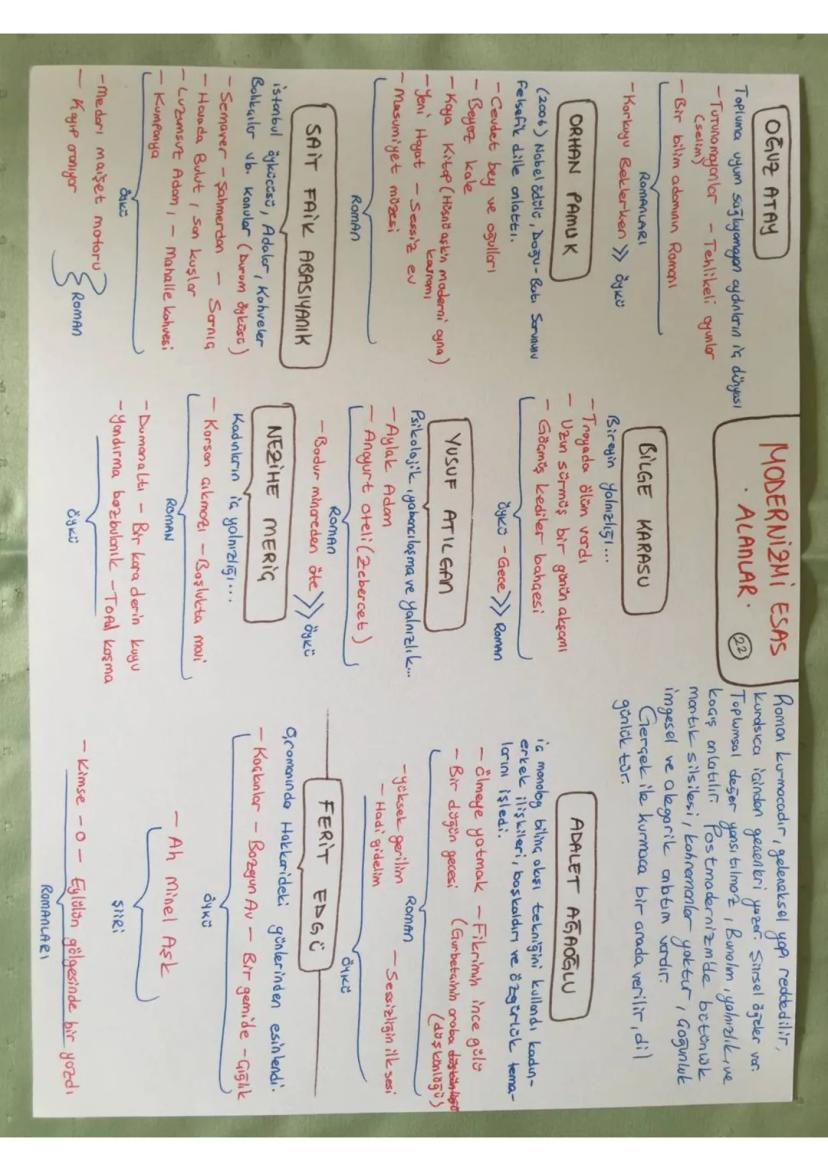 MODERNİZMİ ESAS
· ALANLAR ·
22
Roman kurmacadır, geleneksel yapı reddedilir,
kurduysa içinden geçenleri yazar. Sınsel öğeler var.
Toplumsal değer yansıtılmaz, Bunalım, yalnızlık ve
kaçış anlatılır. Postmodernizmde bütünlük
mantık silsilesi, kahramanlar yoktur, Çoğunluk
imgesel ve alegorik anlatım vardır.
Gerçek ile kurmaca bir arada verilir, dil
günlüktür.
OĞUZ ATAY
Topluma uyum sağlıyamayan aydınların iç dünyası
- Tutunamayanlar - Tehlikeli oyunlar
(selim)
- Bir bilim adamının Romanı
ROMANLARI
- Korkuyu Beklerken >> öykü
ORHAN PAMUK
(2006) Nobel ödülü, Doğu-Batı Sorununu
felsefik dille anlattı.
- Cevdet bey ve oğulları
- Beyaz kale
- Kara Kitap (Hüsnü aşkın moderni ayna)
kavramı
- Yeni Hayat - Sessiz ev
- Masumiyet müzesi
ROMAN
SAİT FAİK ABASIYANIK
İstanbul öykücüsü, Adalar, Kahveler
Balıkçılar vb. konular (Durum öyküsü)
- Semaver - Şahmerdan - Sarnıç
- Havada Bulut, son kuşlar
- Lüzumsuz Adam, - Mahalle kahvesi
- Kumpanya
öykü
- Medarı maişet motoru
- Kayıp aranıyor
ROMAN
BİLGE KARASU
Bireyin yalnızlığı...
- Troyada ölüm vardı
- Uzun sürmüş bir günün akşamı
- Göçmüş kediler bahçesi
öykü - Gece >> Roman
YUSUF ATILGAN
Psikolojik, yabancılaşma ve yalnızlık...
- Aylak Adam
- Anayurt oteli (Zebercet)
ROMAN
- Bodur minareden öte >>> öykü
NEZİHE MERİÇ
Kadınların iç yalnızlığı...
- Korsan çıkmazı - Boşlukta mavi
ROMAN
- Dumanaltı - Bir kara derin kuyu
- Yandırma bozbulanık - Topal koşma
öykü
ADALET AĞAOĞLU
İç monolog bilinç akışı tekniğini kullandı kadın-
erkek ilişkileri, başkaldırı ve özgürlük tema-
larını işledi.
- Ölmeye yatmak - Fikrimin ince gülü
- Bir düğün gecesi (Gurbetçinin araba
(düşkünlüğü)
ROMAN
- yüksek gerilim - Sessizliğin ilk sesi
- Hadi gidelim
öykü
FERİT EDGÜ
romanında Hakkarideki günlerinden esinlendi.
- Kaçkınlar - Bozgun Av - Bir gemide - Çığlık
öykü
- Ah Minel Aşk
şiiri
- Kimse - O - Eylülün gölgesinde bir yazdı
ROMANLARI